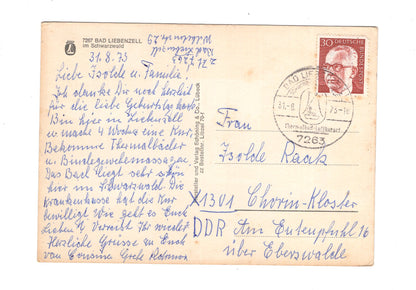 7267 BAD LIEBENZELL
im Schwarzwald
31.8.73
z. Zt 7263
Bad Liebenzell
Liebe Isolde u. Familie!
Ich danke Dir noch herzlich
für die liebe Geburtstagskarte.
Bin hier in Liebenzell
u. mache 4 Wochen eine Kur,
Bekomme Thermalbäder
u. Bindegewebsmassagen.
Das Bad liegt sehr schön
hier im Schwarzwald. Die
Krankenkasse hat die Kur
bewilligt. Wie geht es Euch
Lieben? Verreist Ihr wieder
Herzliche Grüsse an Euch
von Cousine Grete
Schöning & Co., Lübeck
30
DEUTSCHE
BUNDESPOST
BAD LIEBENZELL
31.-8. 73-16
7263
Frau
Isolde Raack
X1301 Chorin-Kloster
DDR Am Eutenpfuhl 16
über Eberswalde